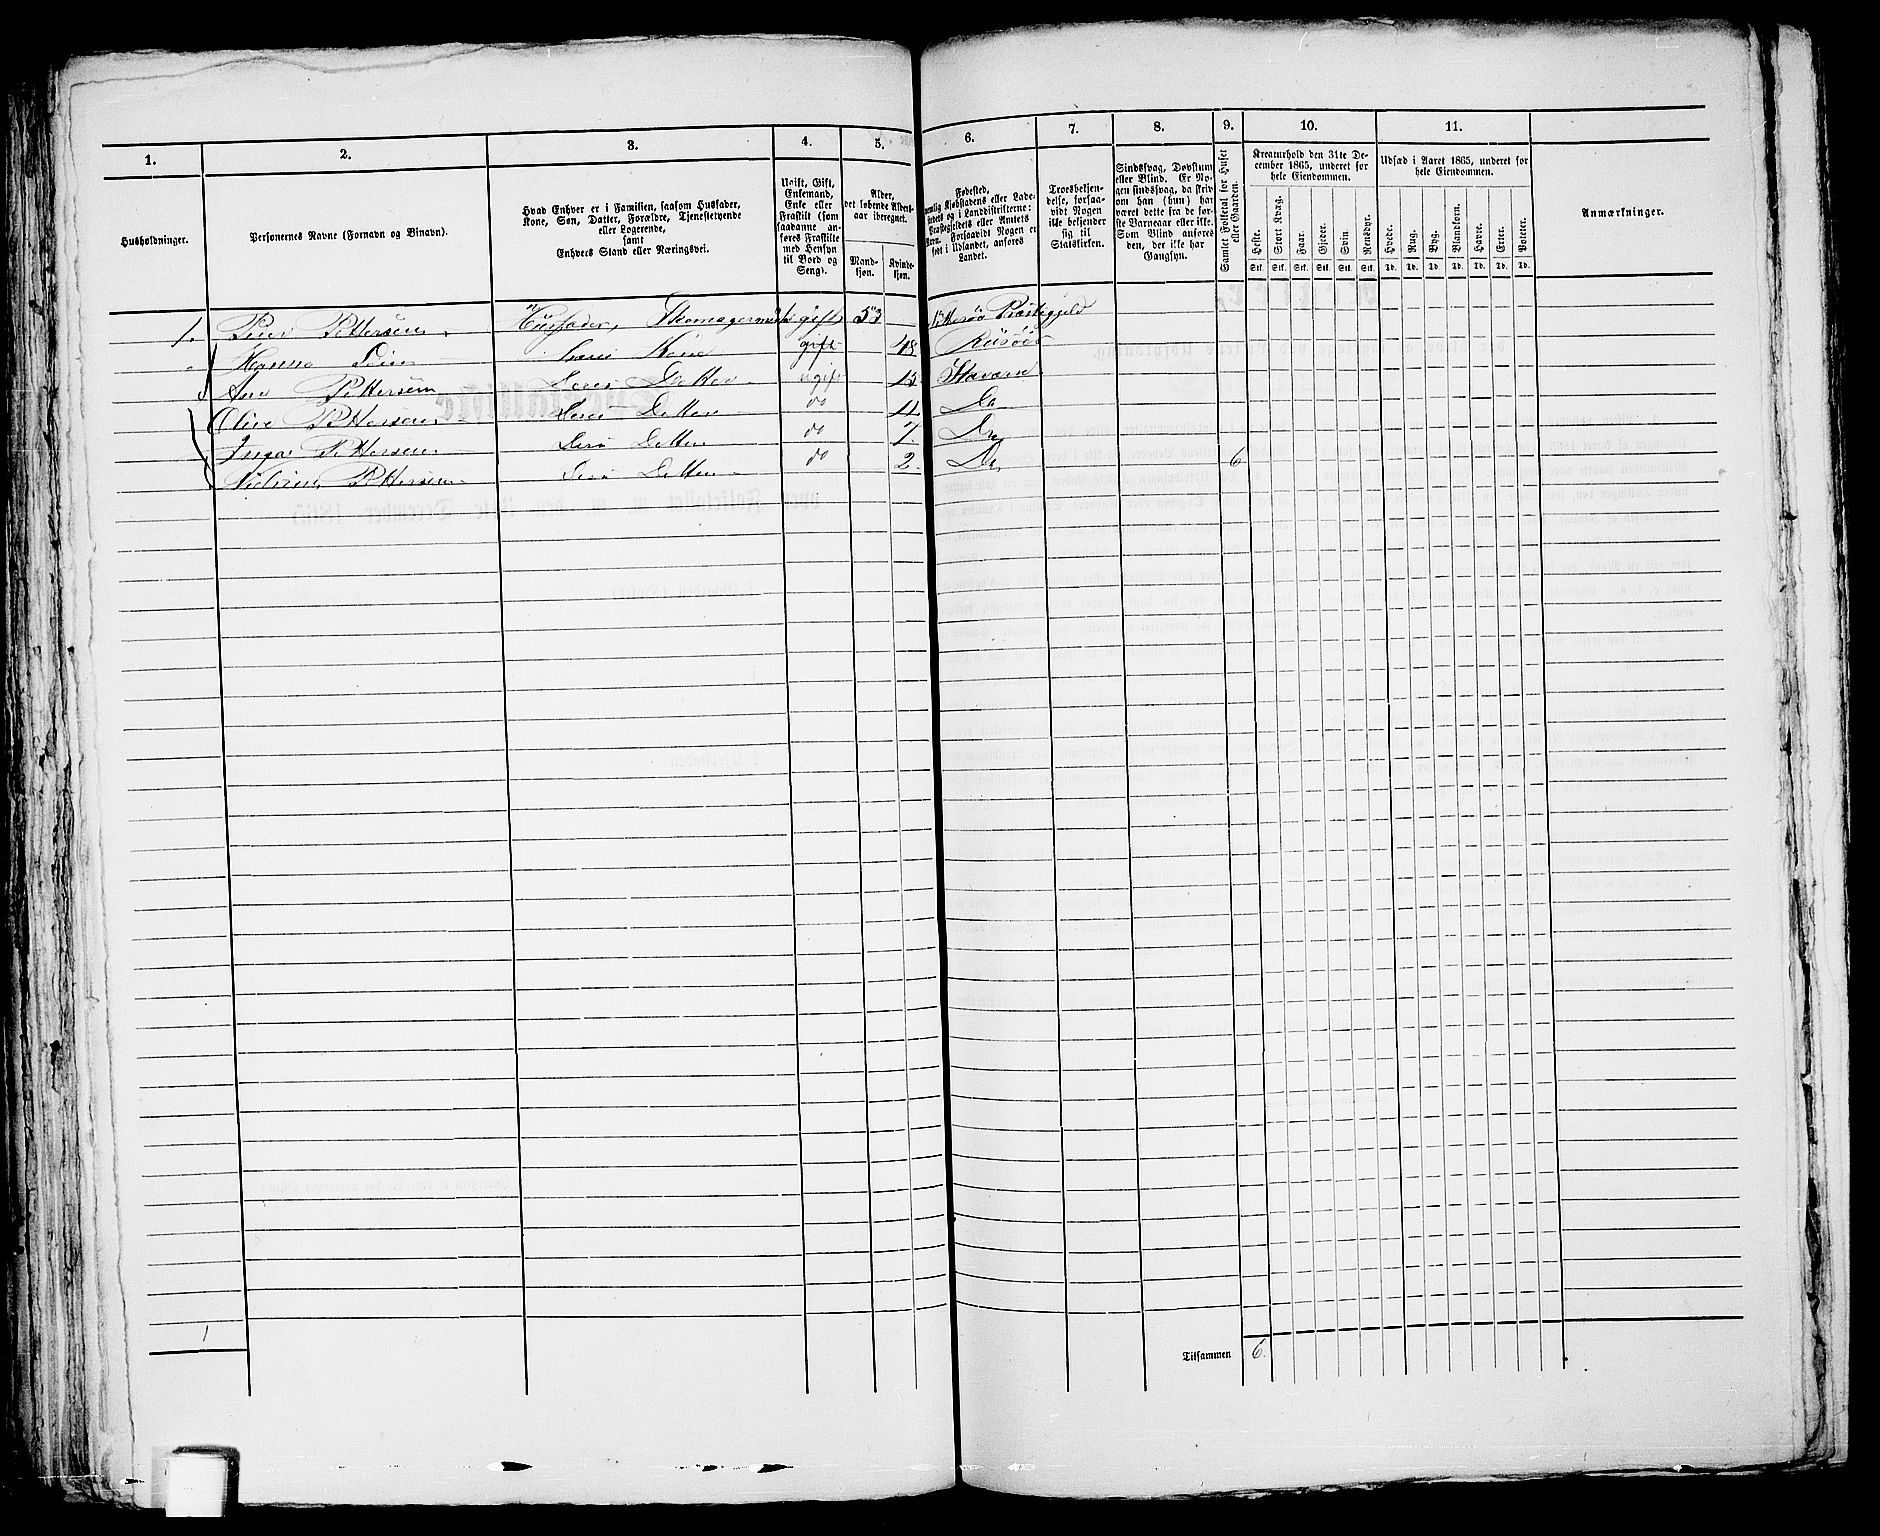 1. 2. 3. 4. 5. 6. 7. 8. 9. 10. 11.
Husholdninger.
Personernes Navne (Fornavn og Binavn).
Hvad Enhver er i Familien, saasom Husfader,
Kone, Søn, Datter, Forældre, Tjenestetyende
eller Logerende,
samt
Enhvers Stand eller Næringsvei.
Ugift, Gift,
Enkemand,
Enke eller
Fraskilt (som
saadanne an-
føres Fraskilte
med Hensyn
til Bord og
Seng).
Alder,
det løbende Alders-
aar iberegnet.
Mand-
kjøn.
Kvinde-
kjøn.
Fødested,
nemlig Kjøbstadens eller Lade-
stedets og i Landdistrikterne:
Præstegjeldets eller Amtets
Navn. Forsaavidt Nogen er
født i Udlandet, anføres
Landet.
Troesbekjen-
delse, forsaa-
vidt Nogen
ikke bekjender
sig til
Statskirken.
Sindssvag, Døvstum
eller Blind. Er No-
gen sindssvag, da skriv
om han (hun) har
været dette fra de før-
ste Barneaar eller ikke.
Som Blind anføres
den, der ikke har
Gangsyn.
Samlet Folketal for Huset
eller Gaarden.
Kreaturhold den 31te De-
cember 1865, underet for
hele Eiendommen.
Heste. Stort Kvæg. Faar. Gjeder. Svin Rensdyr.
Stk. Stk. Stk. Stk. Stk. Stk.
Udsæd i Aaret 1865, underet for
hele Eiendommen.
Hvede. Rug. Byg. Blandkorn. Havre. Erter. Poteter.
Td. Td. Td. Td. Td. Td. Td.
Anmærkninger.
1. Peter Pettersen Huusfader, gift 53 Præstegjeld
Hanna Kone gift 48 Riisöer
Ane Pettersen Deres Datter ugift 15 Staværn
Olive Pettersen Deres Datter do 11 Do
Inga Pettersen Deres Datter do 7. Do
Pettersen Deres Datter do 2. Do 6
1
Tilsammen 6.